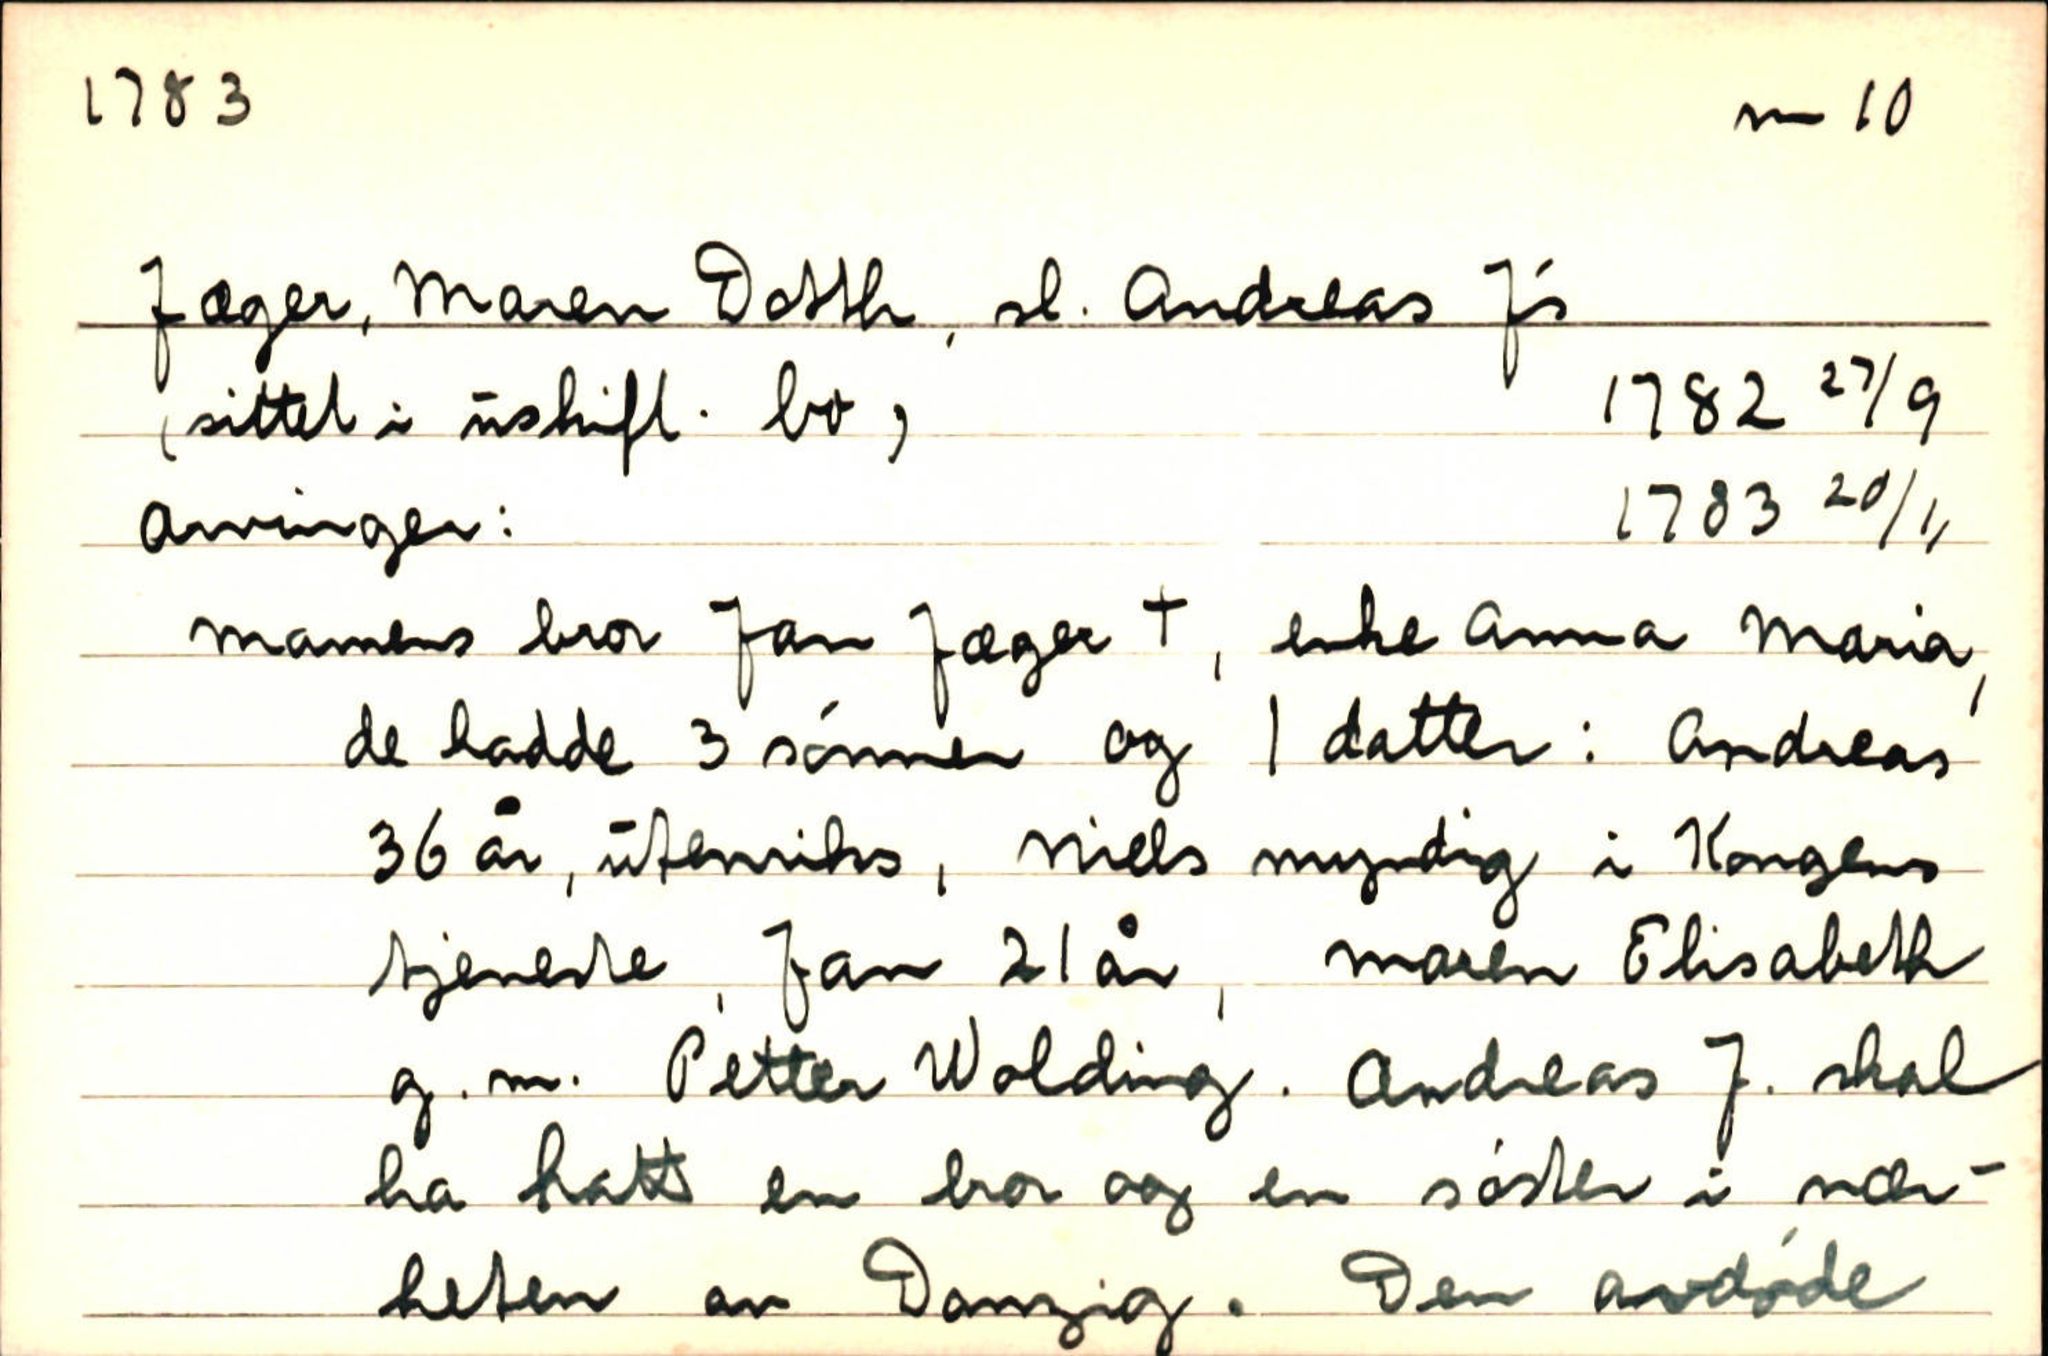 1783
m 10
Jæger, Maren Dotth, sl. Andreas J's
(sittet i uskift. bo, 1782 27/9
arvinger: 1783 20/11
Mannens bror Jan Jæger †, enke Anna Maria,
de hadde 3 sónner og 1 datter: Andreas
36 år, utenriks, Niels myndig i Kongens
tjeneste, Jan 21 år, Maren Elisabeth
g.m. Petter Wolding. Andreas J. skal
ha hatt en bror og en sóster i nær-
heten av Danzig. Den avdóde